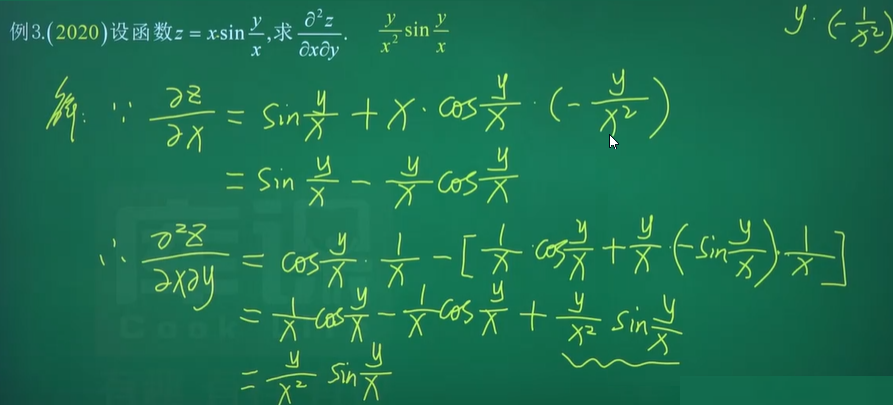 例3.(2020)设函数z = x·sin y/x,求 ∂²z/∂x∂y. y/x² sin y/x
y·(-1/x²)
解: ∵ ∂z/∂x = sin y/x + x · cos y/x · (- y/x²)
= sin y/x - y/x cos y/x
∴ ∂²z/∂x∂y = cos y/x · 1/x - [1/x · cos y/x + y/x · (-sin y/x) · 1/x]
= 1/x cos y/x - 1/x cos y/x + y/x² sin y/x
= y/x² sin y/x